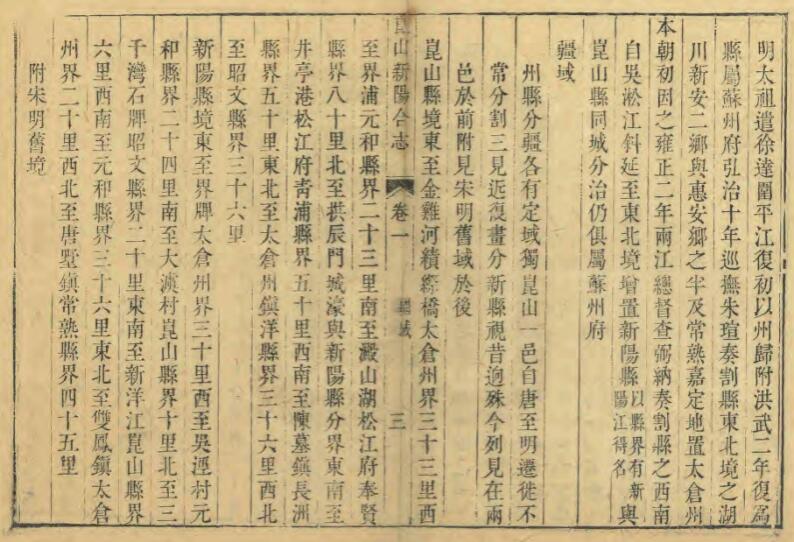 明太祖遣徐達圍平江復初以州歸附洪武二年復爲
縣屬蘇州府弘治十年巡撫朱瑄奏割縣東北境之湖
川新安二鄉與惠安鄉之半及常熟嘉定地置太倉州
本朝初因之雍正二年兩江總督查弼納奏割縣之西南
自吳淞江斜延至東北境增置新陽縣以縣界有新陽江得名與
崑山縣同城分治仍俱屬蘇州府
疆域
州縣分疆各有定域獨崑山一邑自唐至明遷徙不
常分割三見近復畫分新縣視昔逈殊今列見在兩
邑於前附見宋明舊域於後
崑山縣境東至金雞河績縩橋太倉州界三十三里西
崑山新陽合志
卷一
疆域
三
至界浦元和縣界二十三里南至澱山湖松江府奉賢
縣界八十里北至拱辰門城濠與新陽縣分界東南至
井亭港松江府青浦縣界五十里西南至陳墓鎮長洲
縣界五十里東北至太倉州鎮洋縣界三十六里西北
至昭文縣界三十六里
新陽縣境東至界牌太倉州界三十里西至吳涇村元
和縣界二十四里南至大漊村崑山縣界十里北至三
千灣石牌昭文縣界二十里東南至新洋江崑山縣界
六里西南至元和縣界三十六里東北至雙鳳鎮太倉
州界二十里西北至唐墅鎮常熟縣界四十五里
附宋明舊境